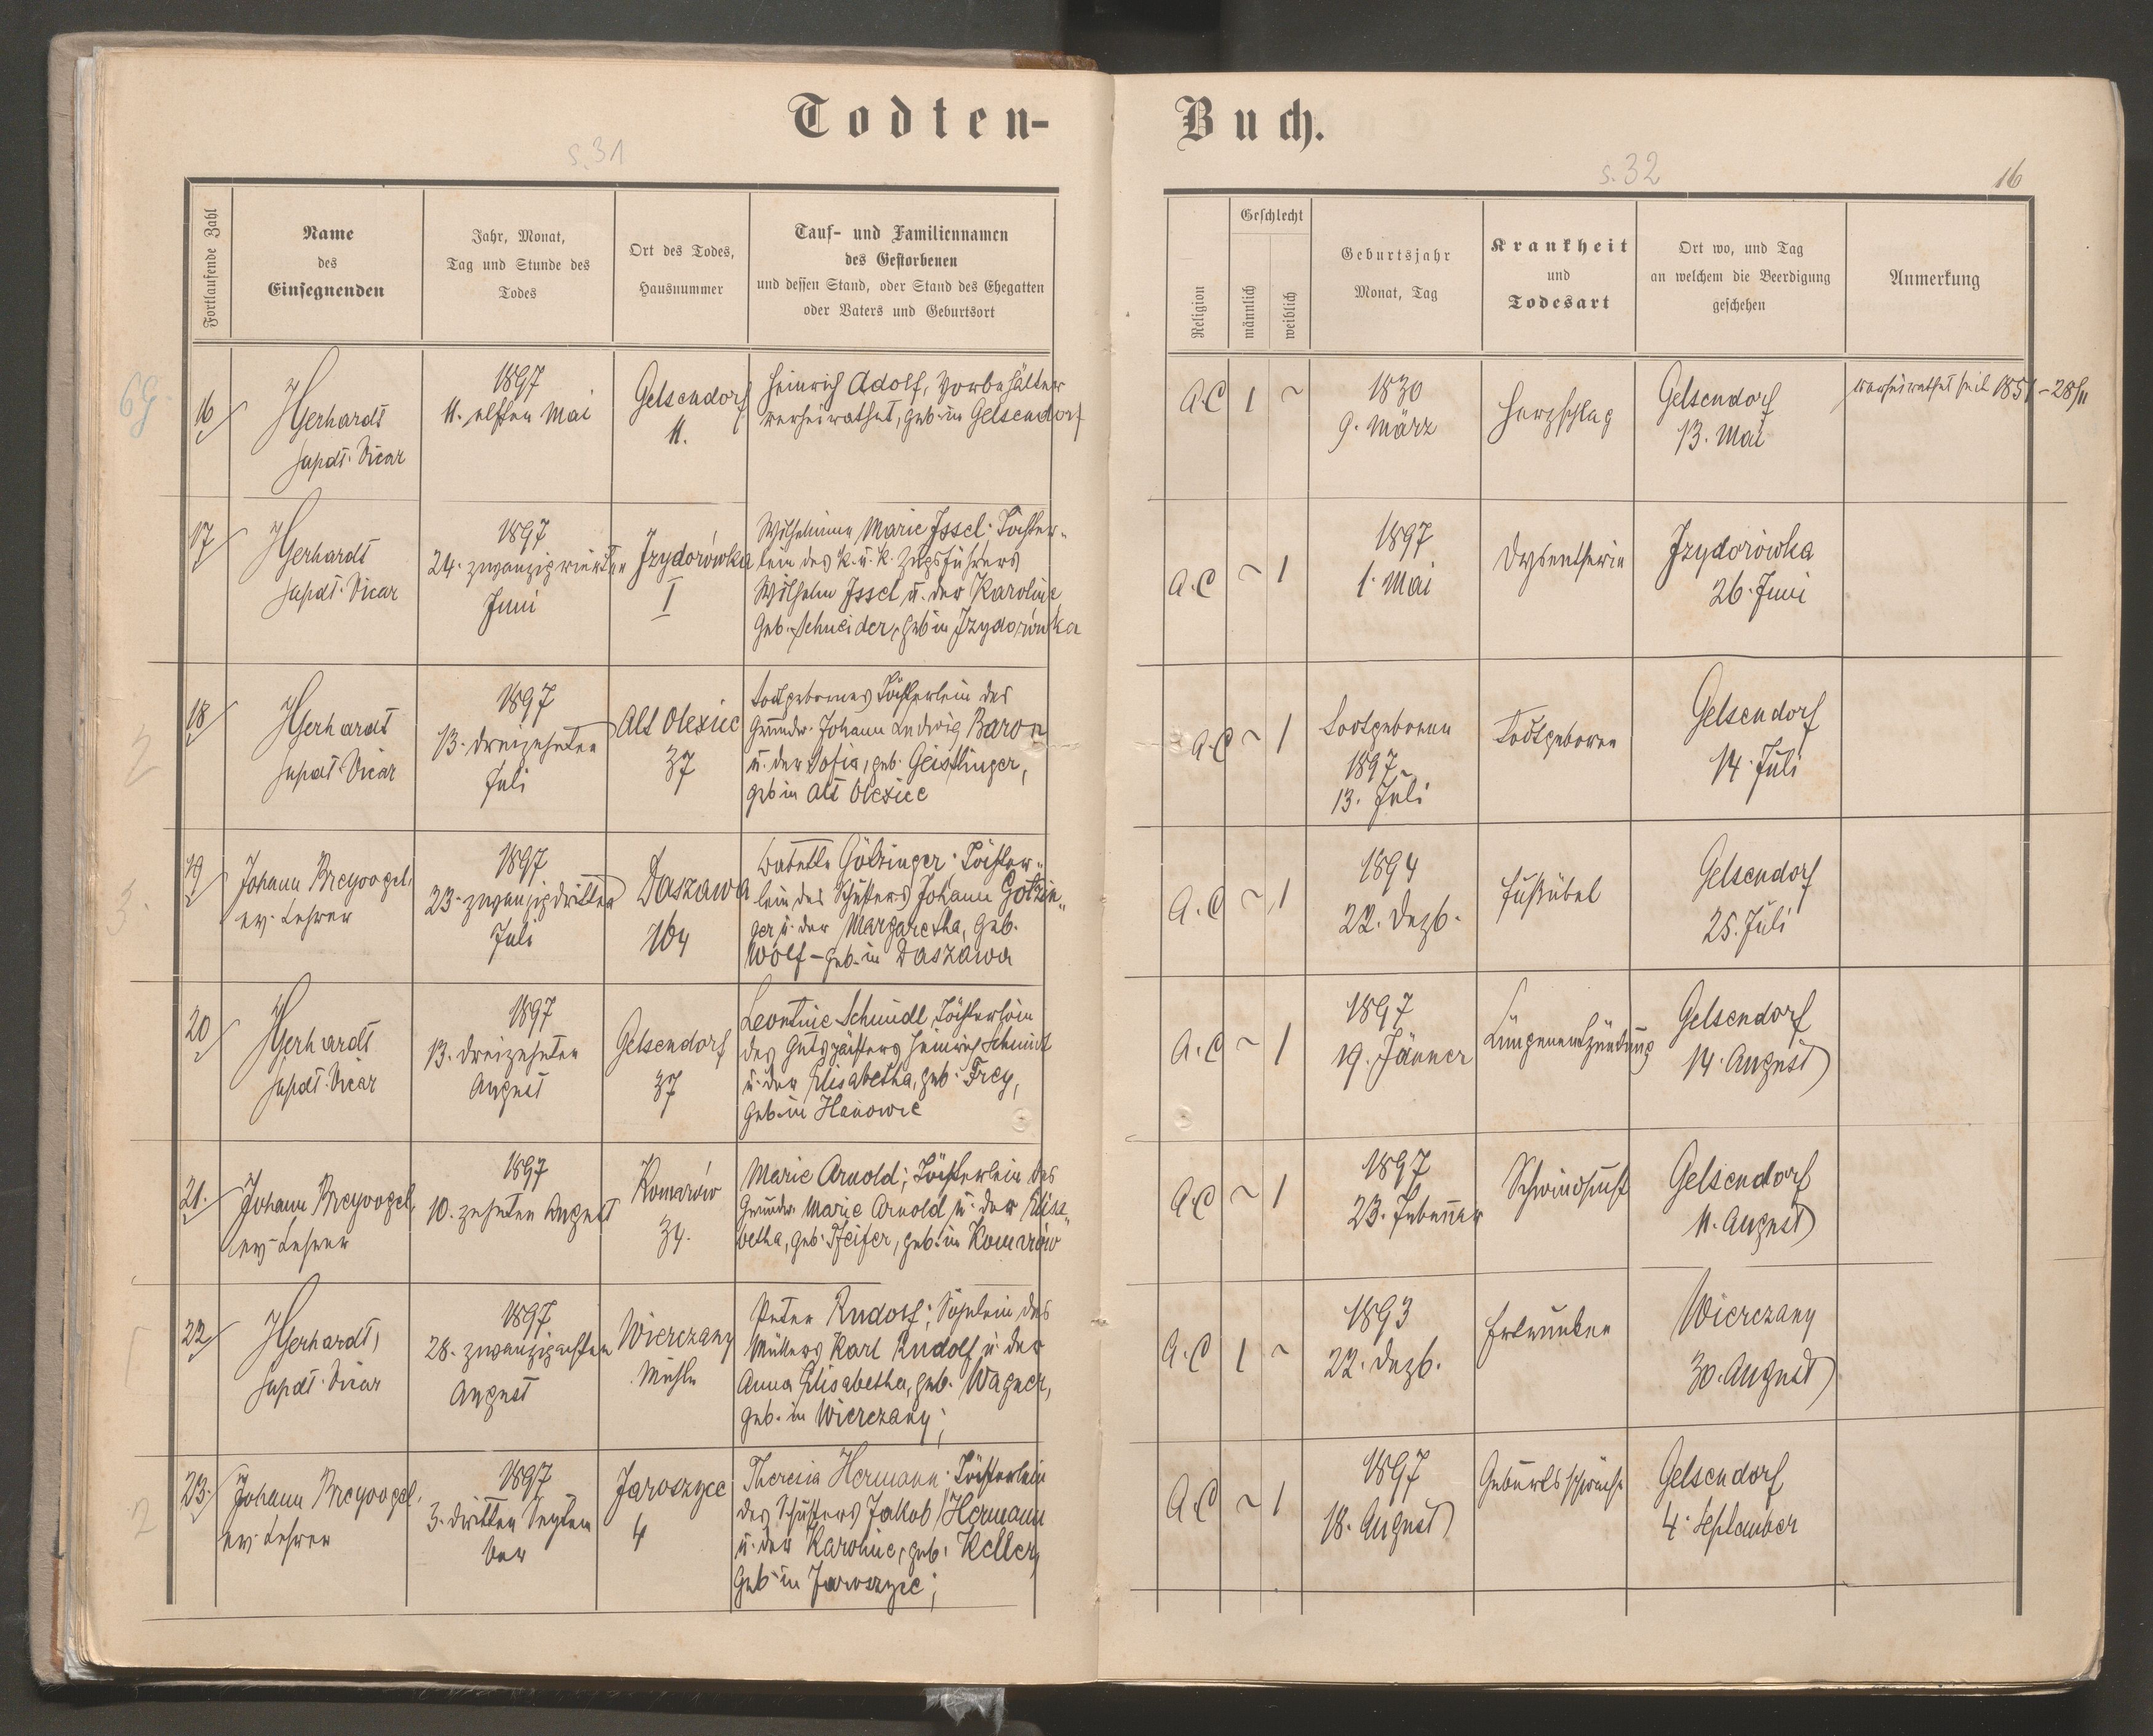 Todten-
Buch.
s. 31
s. 32
16
Fortlaufende Zahl
Name
des
Einsegnenden
Jahr, Monat,
Tag und Stunde des
Todes
Ort des Todes,
Hausnummer
Tauf- und Familiennamen
des Gestorbenen
und dessen Stand, oder Stand des Ehegatten
oder Vaters und Geburtsort
Religion
Geschlecht
männlich
weiblich
Geburtsjahr
Monat, Tag
Krankheit
und
Todesart
Ort wo, und Tag
an welchem die Beerdigung
geschehen
Anmerkung
69.
16
HGerhardt
supdt. Vicar
1897
11. elften Mai
Gelsendorf
11.
Heinrich Adolf, Vorbehälter
verheirathet, geb. in Gelsendorf
A.C
1
~
1830
9. März
Herzschlag
Gelsendorf
13. Mai
verheirathet seit 1851 - 28/11
17
HGerhardt
supdt. Vicar
1897
24. zwanzigvierten
Juni
Izydorówka
I
Wilhelmine Marie Issel; Töchter-
lein des k. u. k. Zugsführers
Wilhelm Issel u. der Karoline
geb. Schneider, geb in Izydorówka
A.C
~
1
1897
1. Mai
Dysentherie
Izydorówka
26. Juni
2
18
HGerhardt
supdt. Vicar
1897
13. dreizehnten
Juli
Alt Olexice
37
Todtgebornes Töchterlein des
Grundw. Johann Ludwig Baron
u. der Sofia, geb. Geistlinger,
geb in Alt Olexice
A.C
~
1
Todtgeboren
1897
13. Juli
Todtgeboren
Gelsendorf
14. Juli
3.
19
Johann Breyvogel,
ev. Lehrer
1897
23. zwanzigdritten
Juli
Daszawa
164
Babette Götzinger; Töchter-
lein des Schusters Johann Götzin-
ger u. der Margaretha, geb.
Wolf - geb. in Daszawa
A.C
~
1
1894
22. Dezb.
Fußübel
Gelsendorf
25. Juli
20
HGerhardt
supdt. Vicar
1897
13. dreizehnten
August
Gelsendorf
37
Leontine Schmidt, Töchterlein
des Gutspächters Heinrich Schmidt
u. der Elisabetha, geb. Frey,
geb. in Hanowce
A.C
~
1
1897
19. Jänner
Lungenentzündung
Gelsendorf
14. August
21.
Johann Breyvogel,
ev. Lehrer
1897
10. zehnten August
Komarów
34.
Marie Arnold; Töchterlein des
Grundw. Marie Arnold u. der Elisa-
betha, geb. Pfeifer, geb. in Komarów
A.C
~
1
1897
23. Februar
Schwindsucht
Gelsendorf
11. August
1
22
HGerhardt,
supdt. Vicar
1897
28. zwanzigachten
August
Wierczany
Mühle
Peter Rudolf; Söhnlein des
Müllers Karl Rudolf u. der
Anna Elisabetha, geb. Wagner,
geb. in Wierczany;
A.C
1
~
1893
22. Dezb.
Ertrunken
Wierczany
30. August
2
23
Johann Breyvogel,
ev. Lehrer
1897
3. dritten Septem
ber
Jaroszyce
4
Theresia Hermann; Töchterlein
des Schusters Jakob Hermann
u. der Karoline, geb. Keller,
geb in Jaroszyce;
A.C
~
1
1897
18. August
Geburtsschwäche
Gelsendorf
4. September